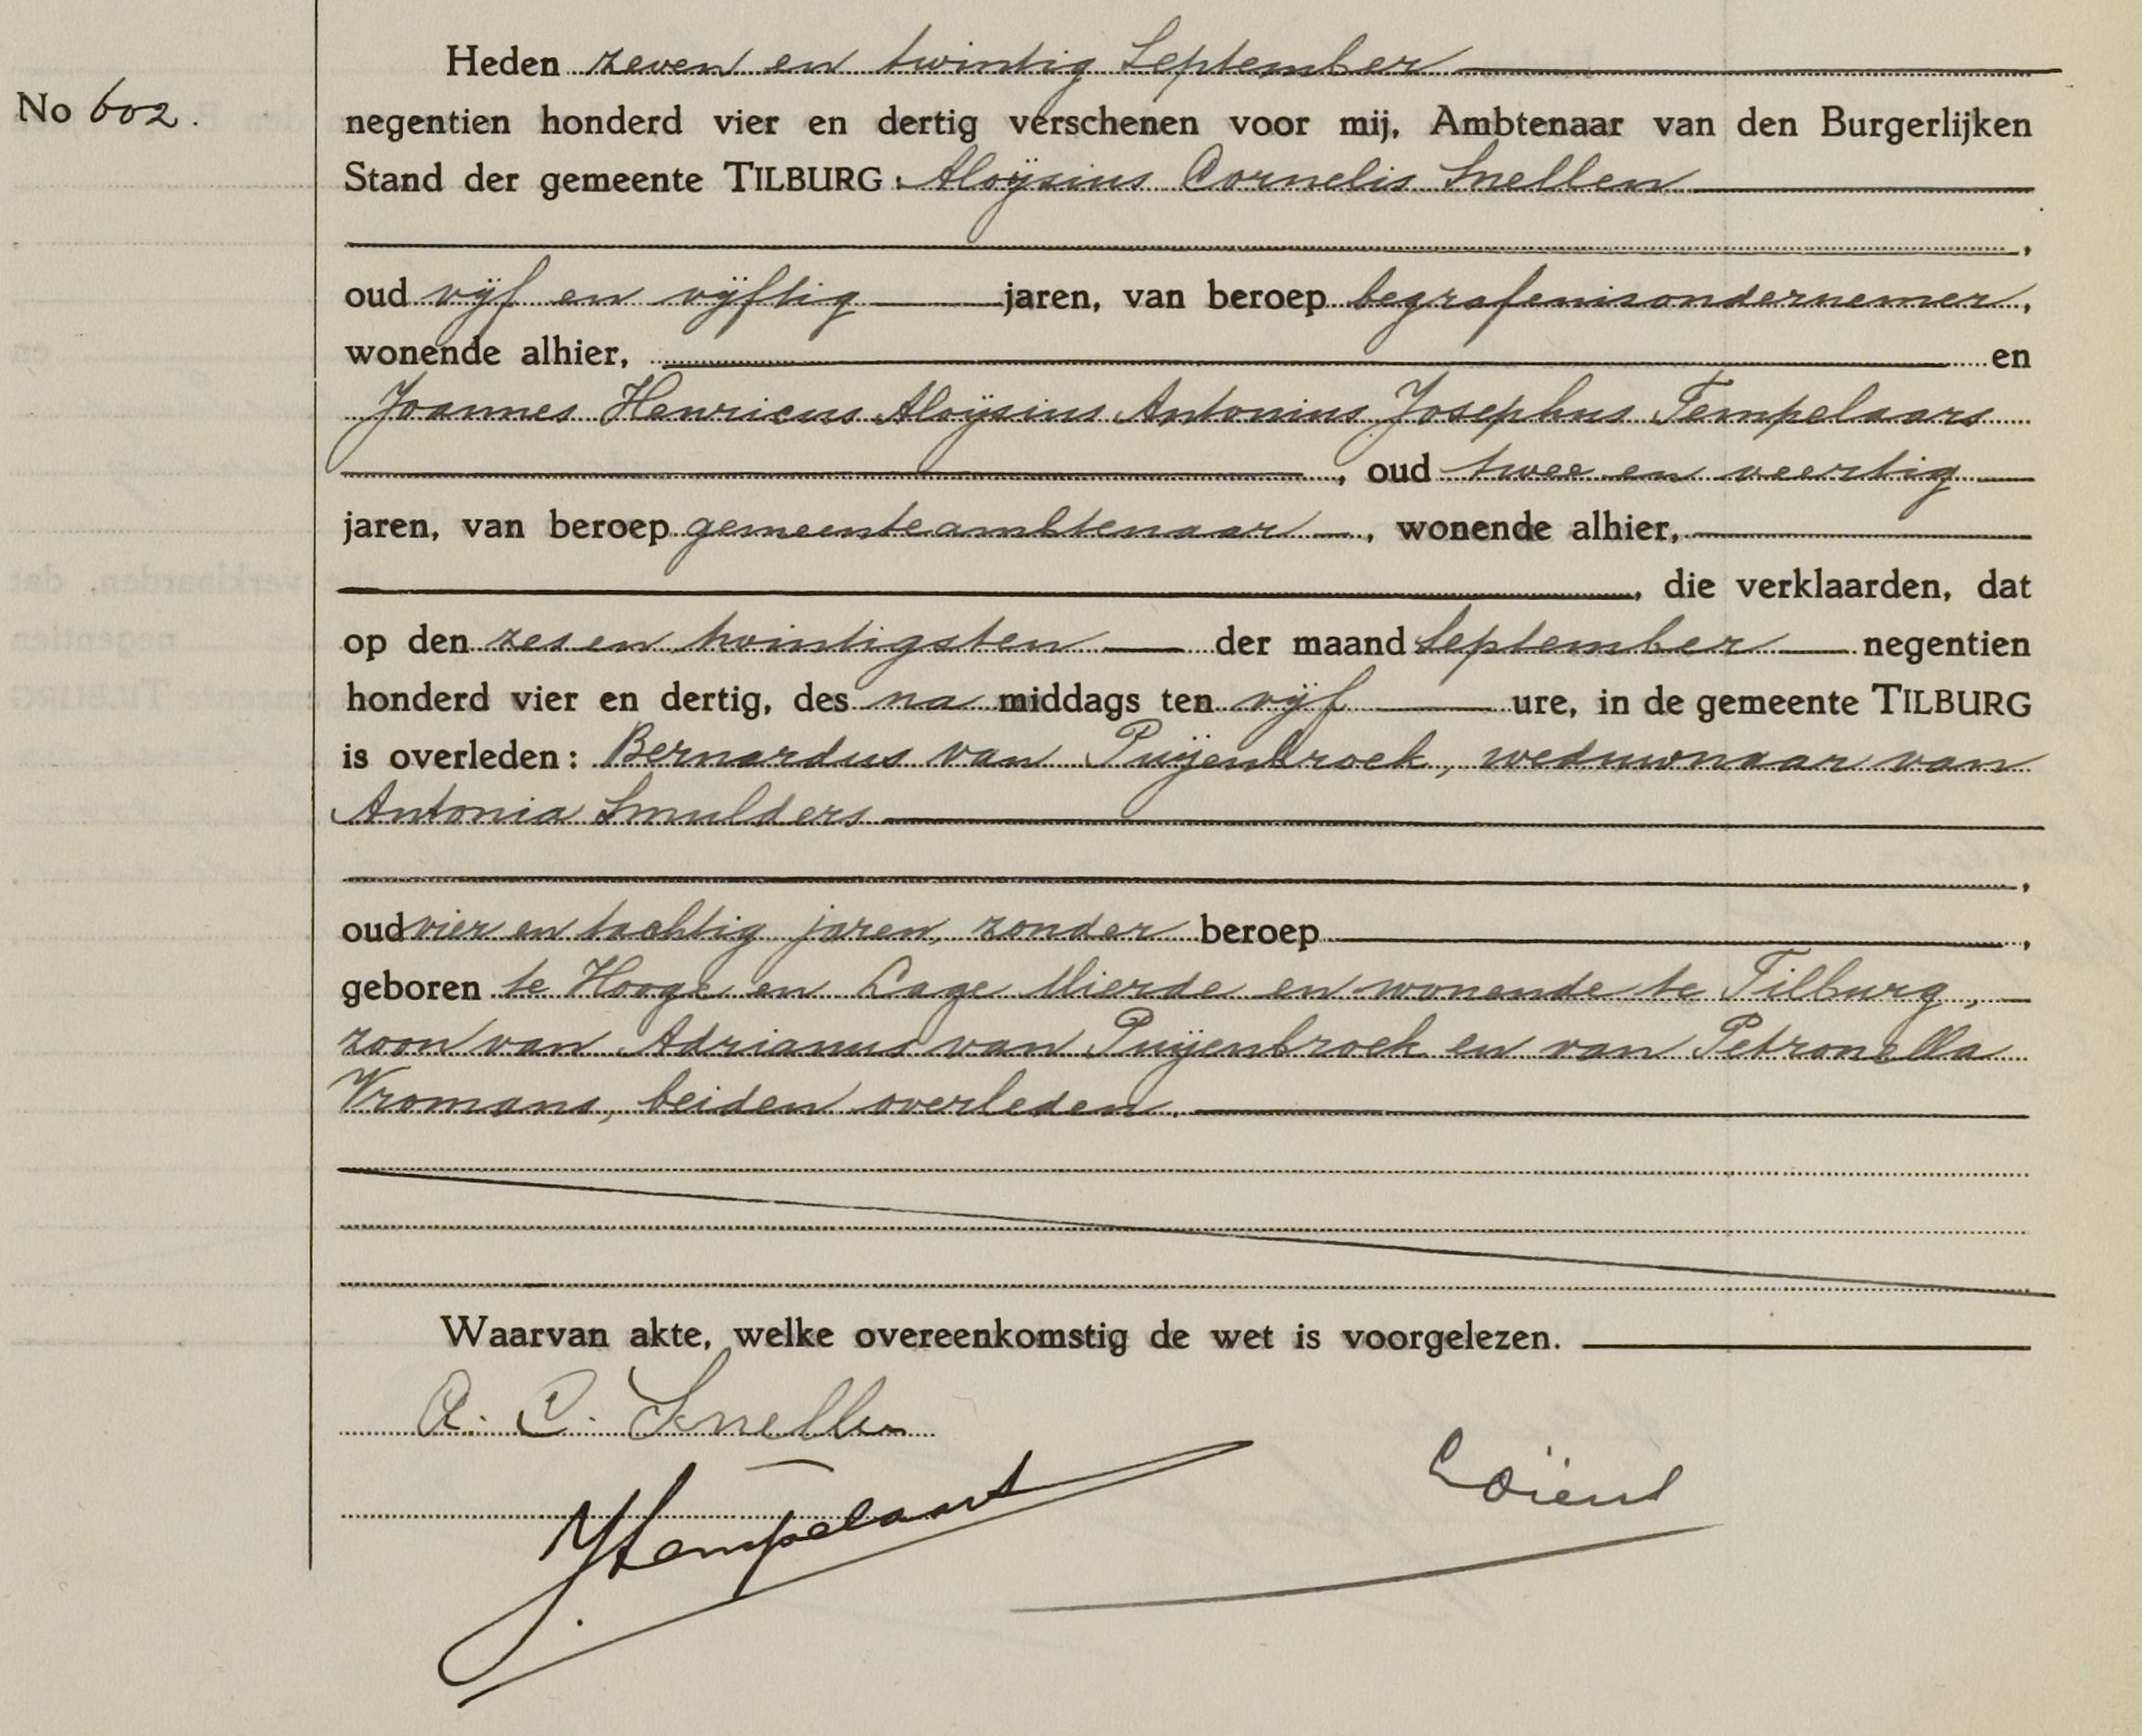 Heden zeven en twintig September
No 602.
negentien honderd vier en dertig verschenen voor mij, Ambtenaar van den Burgerlijken
Stand der gemeente TILBURG: Aloÿsius Cornelis Snellen
,
oud vijf en vijftig jaren, van beroep begrafenisondernemer,
wonende alhier, en
Joannes Henricus Aloÿsius Antonius Josephus Tempelaars
, oud twee en veertig
jaren, van beroep gemeenteambtenaar, wonende alhier,
, die verklaarden, dat
op den zes en twintigsten der maand September negentien
honderd vier en dertig, des na middags ten vijf ure, in de gemeente TILBURG
is overleden: Bernardus van Puijenbroek, weduwnaar van
Antonia Smulders
,
oud vier en tachtig jaren, zonder beroep,
geboren te Hooge en Lage Mierde en wonende te Tilburg,
zoon van Adrianus van Puijenbroek en van Petronella
Vromans, beiden overleden.
Waarvan akte, welke overeenkomstig de wet is voorgelezen.
A. C. Snellen
JTempelaars